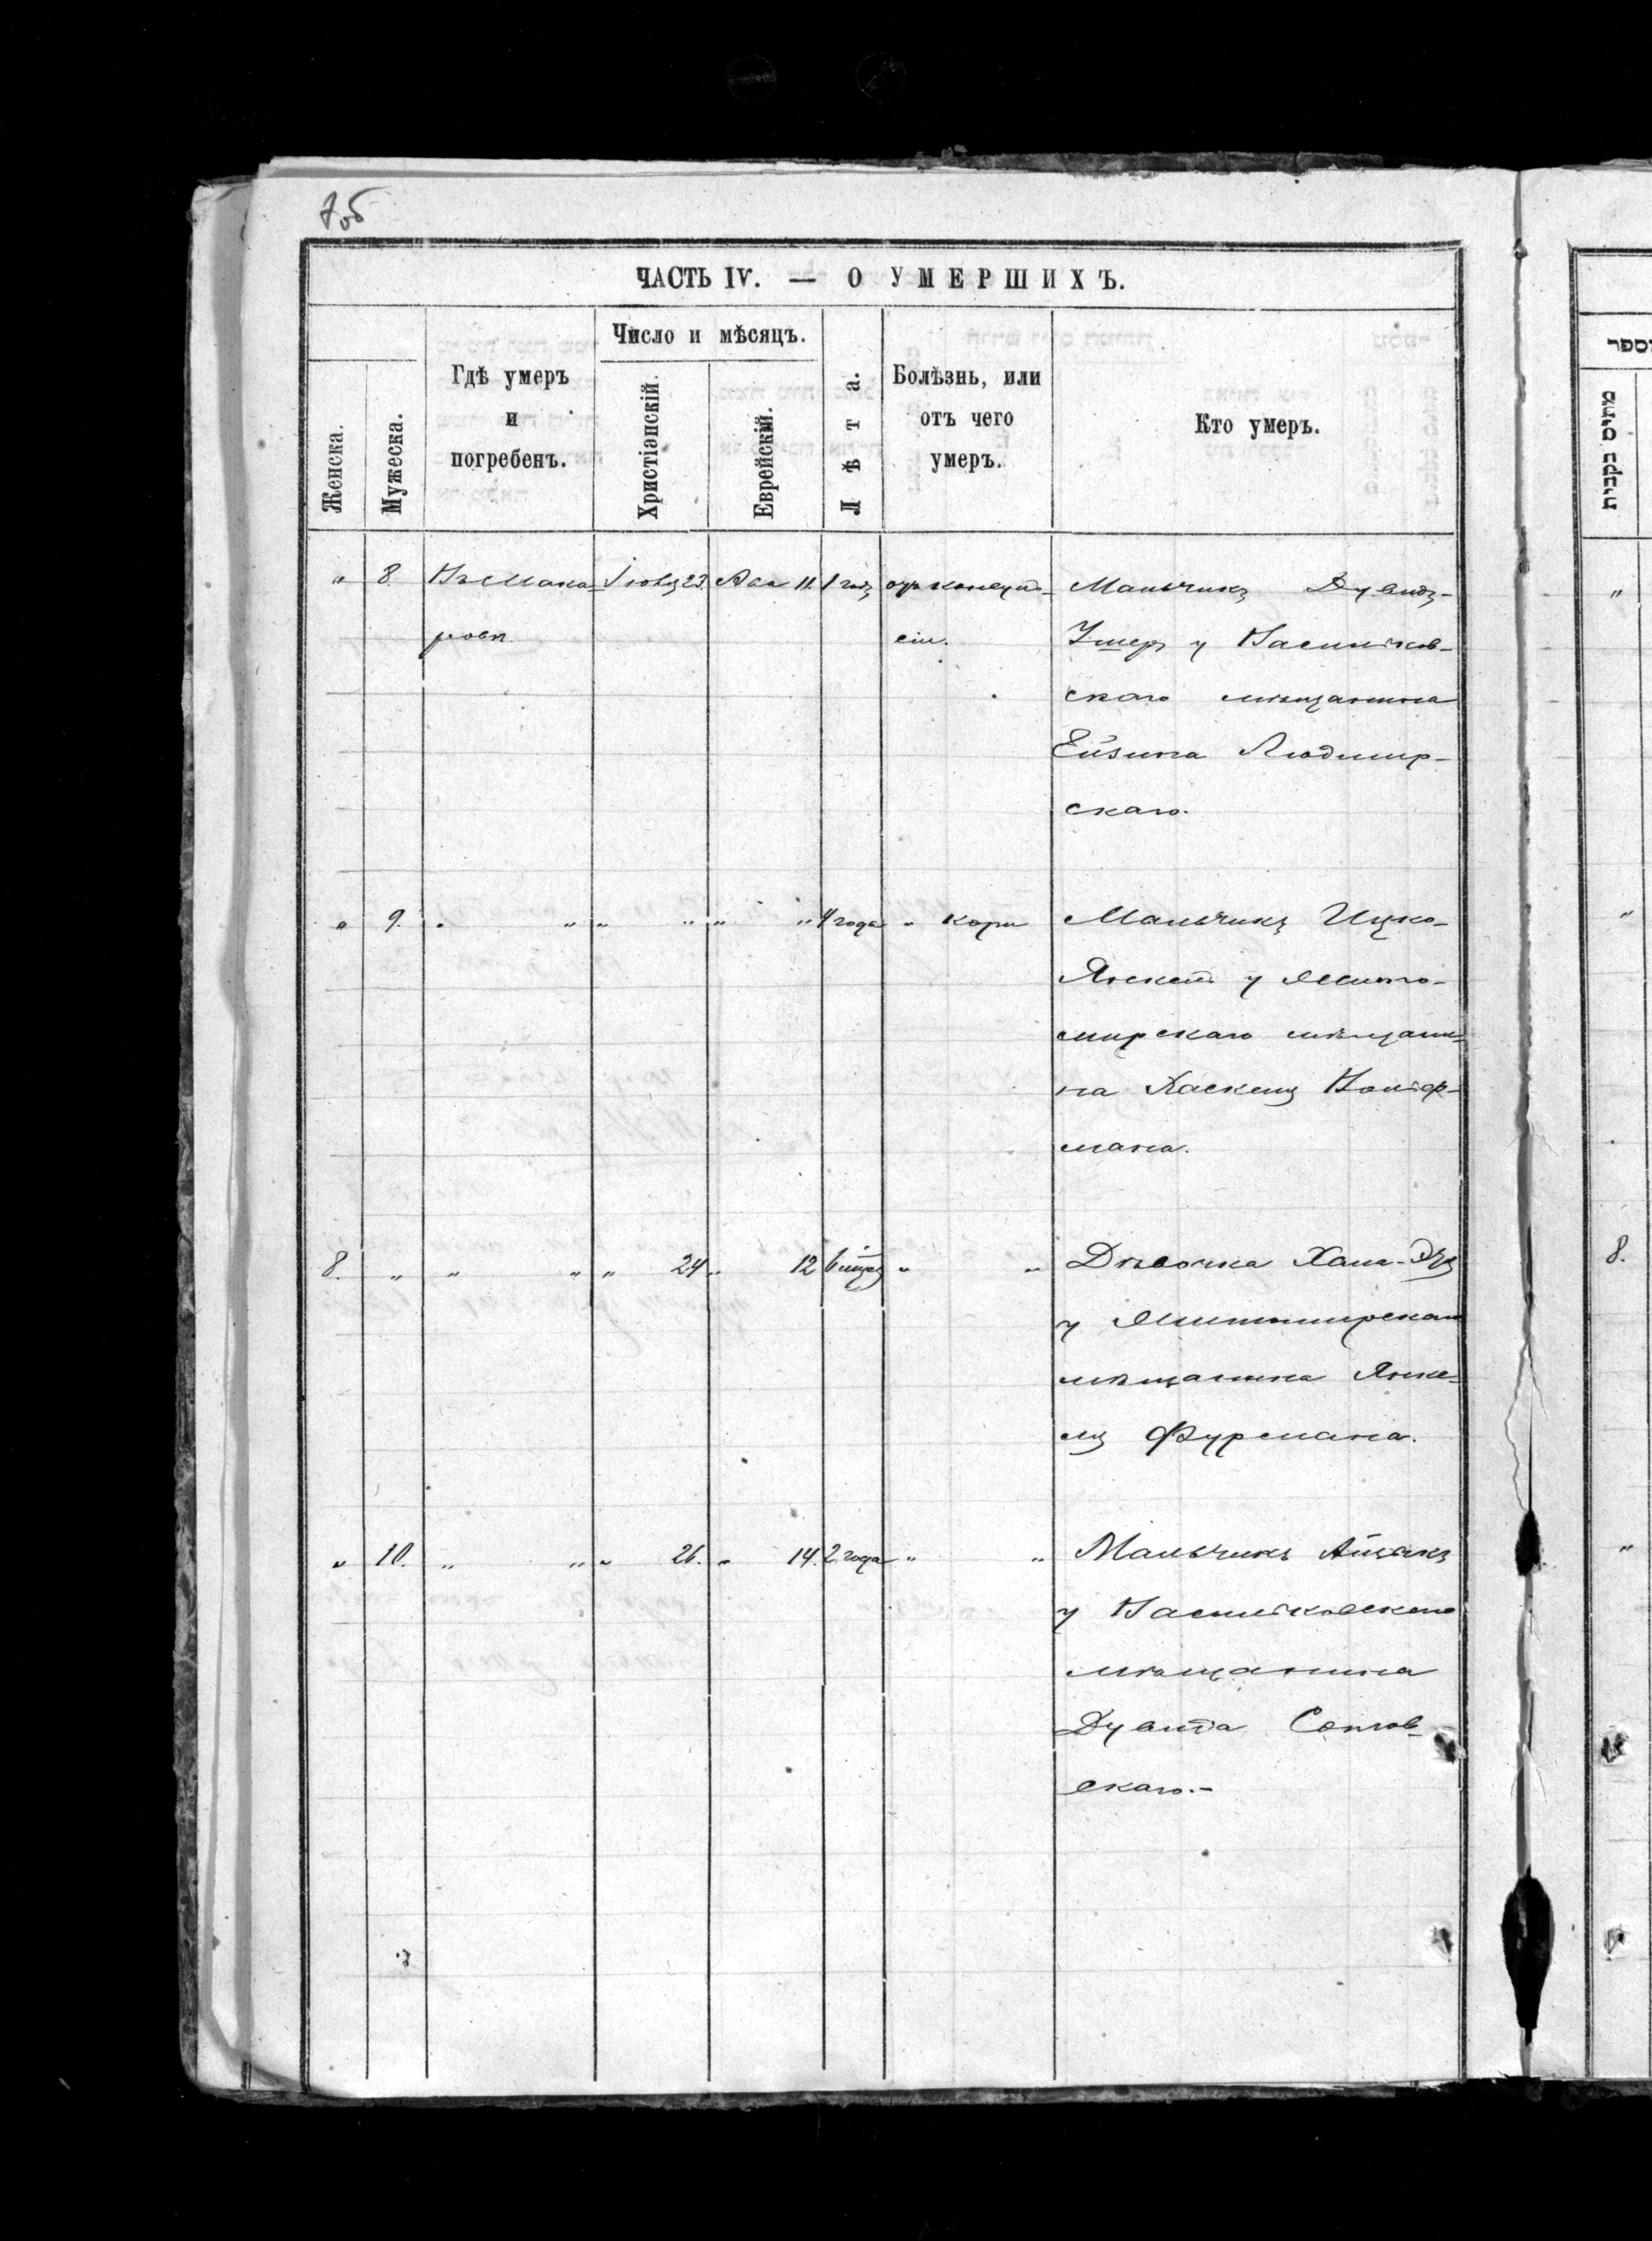 7об
ЧАСТЬ IV. — О УМЕРШИХЪ.
Женска.
Мужеска.
Гдѣ умеръ
и
погребенъ.
Число и мѣсяцъ.
Христіанскій.
Еврейскій.
Лѣта.
Болѣзнь, или
отъ чего
умеръ.
Кто умеръ.
" 8. Въ Мака- Іюля 23. Ава 11. 1 годъ отъ конвуль- Мальчикъ Дувидъ-
ровѣ. сіи. Ушеръ у Васильков-
скаго мѣщанина
Ейзика Людмир-
скаго.
" 9. " " " " " " 4 года " кори Мальчикъ Ицко-
Янкель у Жито-
мирскаго мѣщани-
на Хаскеля
мана.
8. " " " " 24 " 12 6 " " Дѣвочка Хана-
у Житомирскаго
мѣщанина Янке-
ля Фурмана.
" 10. " " " 26. " 14. 2 года " " Мальчикъ Айзикъ
у Васильковскаго
мѣщанина
Дувида
скаго.-
מספר
מתים נקבות
"
"
8.
"